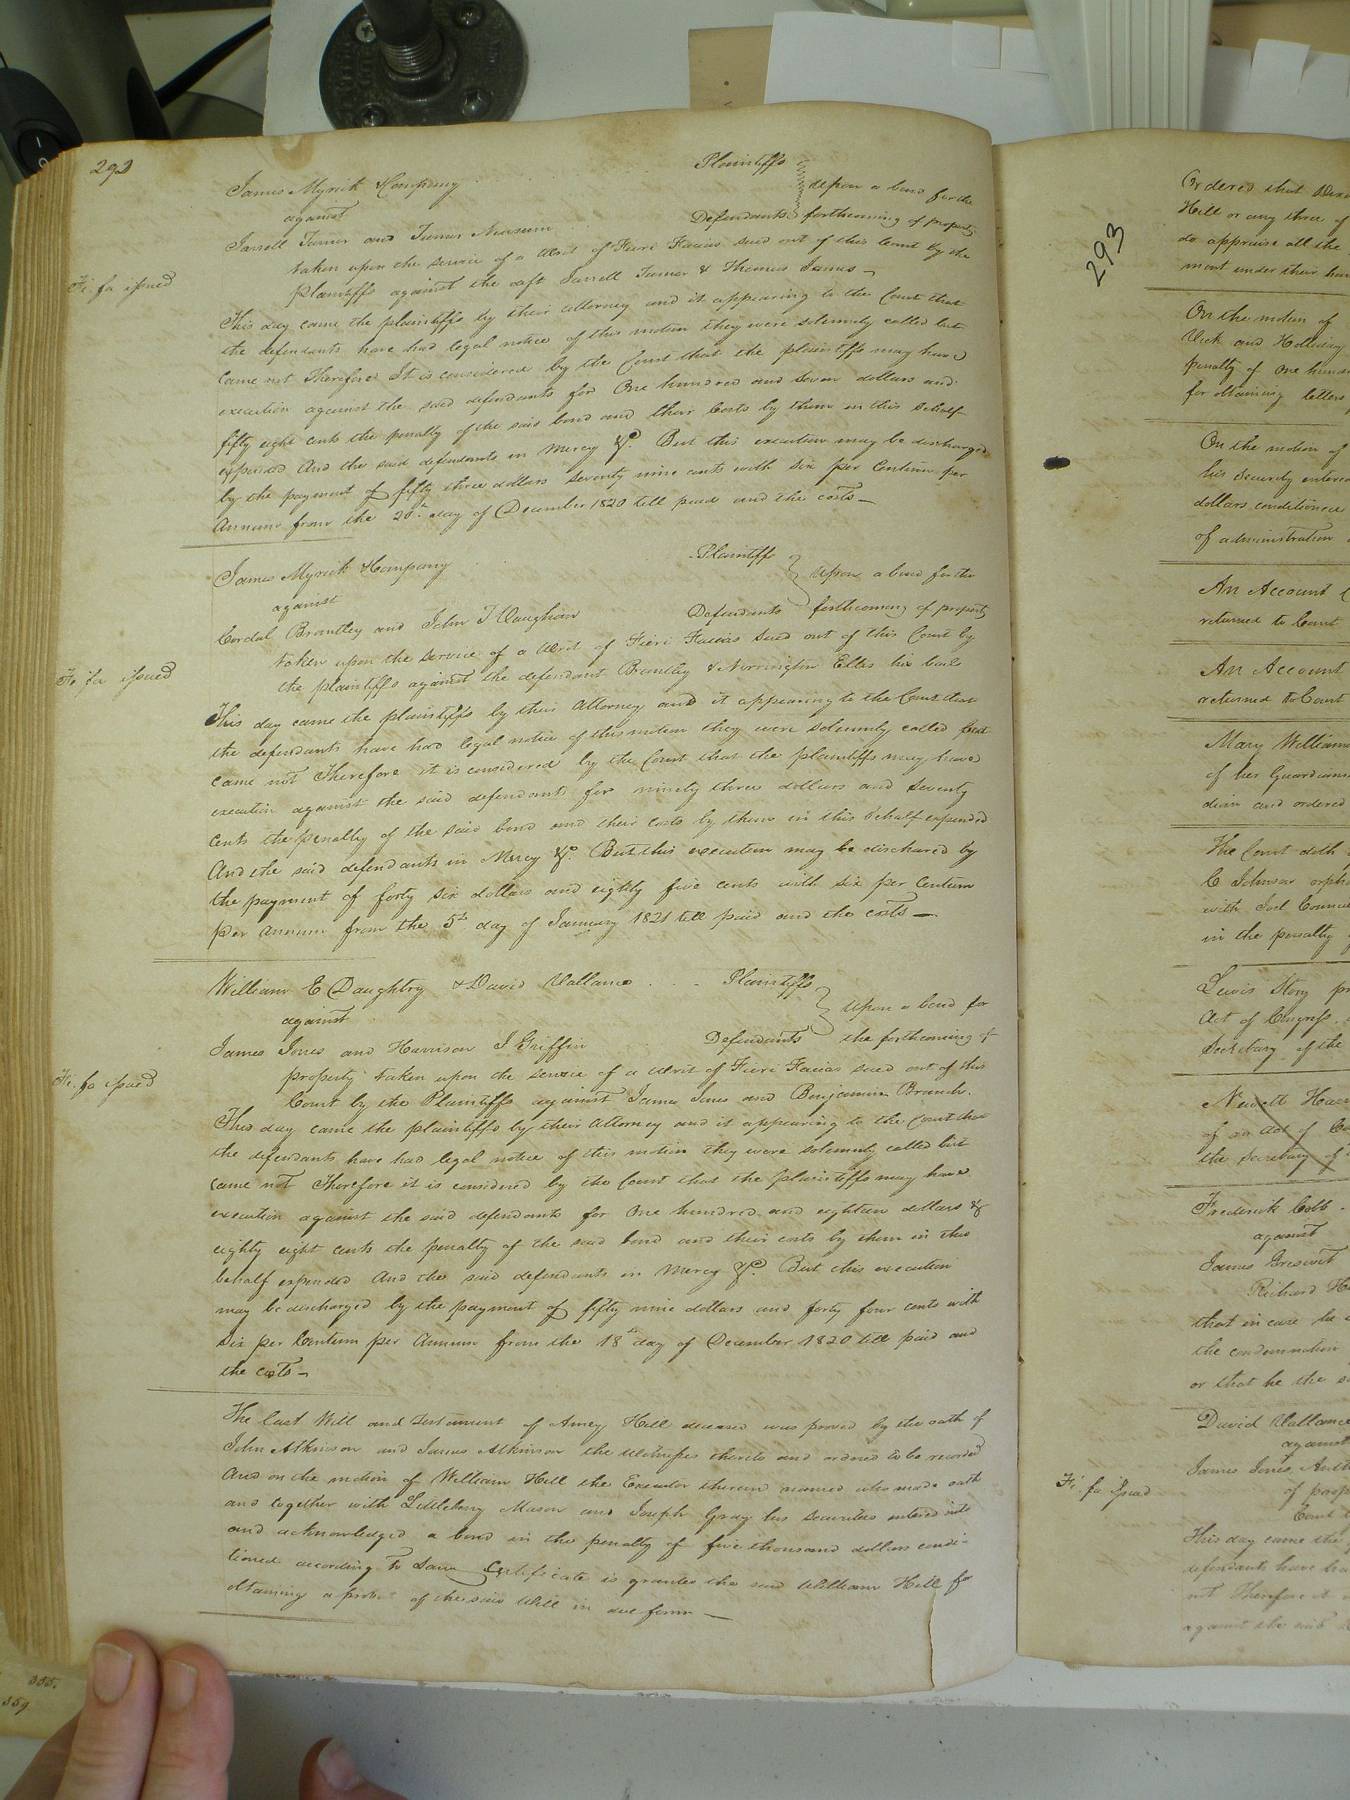 292
Plaintiffs
James Myrick & Company
upon a bond for the
against
Defendants forthcoming of property
Jarrell Turner and Turner Newsum
taken upon the service of a Writ of Fieri Facias sued out of this Court by the
Fi. fa issued
plaintiffs against the deft Jarrell Turner & Thomas James —
This day came the plaintiffs by their attorney and it appearing to the Court that
the defendants have had legal notice of this motion they were solemnly called but
came not Therefore It is considered by the Court that the plaintiffs may have
execution against the said defendants for One hundred and Seven dollars and
fifty eight cents the penalty of the said bond and their Costs by them in this behalf
expended And the said defendants in Mercy &c. But this execution may be discharged
by the payment of fifty three dollars Seventy nine cents with six per Centum per
Annum from the 20th day of December 1820 till paid and the costs —
Plaintiff
James Myrick & Company
upon a bond for the
against
Defendants forthcoming of property
Cordal Brantley and John T Vaughan
taken upon the service of a Writ of Fieri Facias sued out of this Court by
Fi fa issued
the plaintiffs against the defendant Brantley & Norrington Ellis his bail
This day came the plaintiffs by their Attorney and it appearing to the Court that
the defendants have had legal notice of this motion they were solemnly called but
came not Therefore it is considered by the Court that the plaintiffs may have
execution against the said defendants for ninety three dollars and seventy
Cents the penalty of the said bond and their costs by them in this behalf expended
And the said defendants in Mercy &c. But this execution may be discharged by
the payment of forty six dollars and eighty five cents with six per Centum
per Annum from the 5th day of January 1821 till paid and the costs —
William E Daughtry & David Vallance . . . Plaintiffs
upon a bond for
against
James Jones and Harrison J Griffin Defendants the forthcoming of
property taken upon the service of a Writ of Fieri Facias sued out of this
Fi. fa issued
Court by the Plaintiffs against James Jones and Benjamin Branch.
This day came the plaintiffs by their Attorney and it appearing to the Court that
the defendants have had legal notice of this motion they were solemnly called but
came not Therefore it is considered by the Court that the plaintiffs may have
execution against the said defendants for One hundred and eighteen dollars &
eighty eight cents the penalty of the said bond and their costs by them in this
behalf expended And the said defendants in Mercy &c. But this execution
may be discharged by the payment of fifty nine dollars and forty four cents with
Six per Centum per Annum from the 18th day of December 1820 till paid and
the costs —
The last Will and Testament of Amey Hill deceased was proved by the oath of
John Atkinson and James Atkinson the Witnesses thereto and ordered to be recorded
And on the motion of William Hill the Executor therein named who made oath
and together with Littlebury Mason and Joseph Gray his securities entered into
and acknowledged a bond in the penalty of five thousand dollars condi-
tioned according to Law Certificate is granted the said William Hill for
obtaining a probt of the said Will in due form —
355.
359
293
Ordered that
Hill or any three of
do appraise all the
ment under their
On the motion of
Vick and Holleday
penalty of One
for obtaining letters
On the motion of
his Security entered
dollars conditioned
of administration
An Account
returned to Court
An Account
returned to Court
Mary Williams
of her Guardian
dian and ordered
The Court doth
C Johnson
with Joel
in the penalty
Lewis Story
Act of Congress.
Secretary of the
Newitt
of an Act of
the Secretary of
Frederick Cobb
against
James
Richard
that in case he
the condemnation
or that he the
David Vallance
against
James Jones
Fi. fa issued
of
Court
This day came the
defendants have had
not Therefore it
against the said